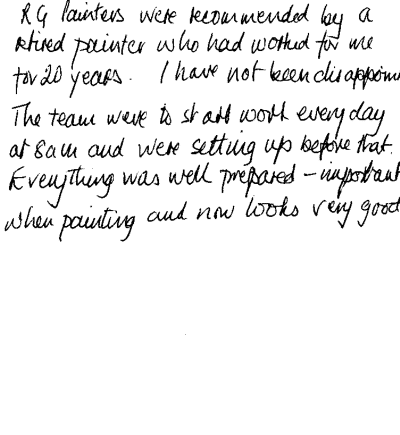 RG Painters were recommended by a
retired painter who had worked for me
for 20 years. I have not been disappoin
The team were to start work every day
at 8am and were setting up before that.
Everything was well prepared - important
when painting and now looks very good